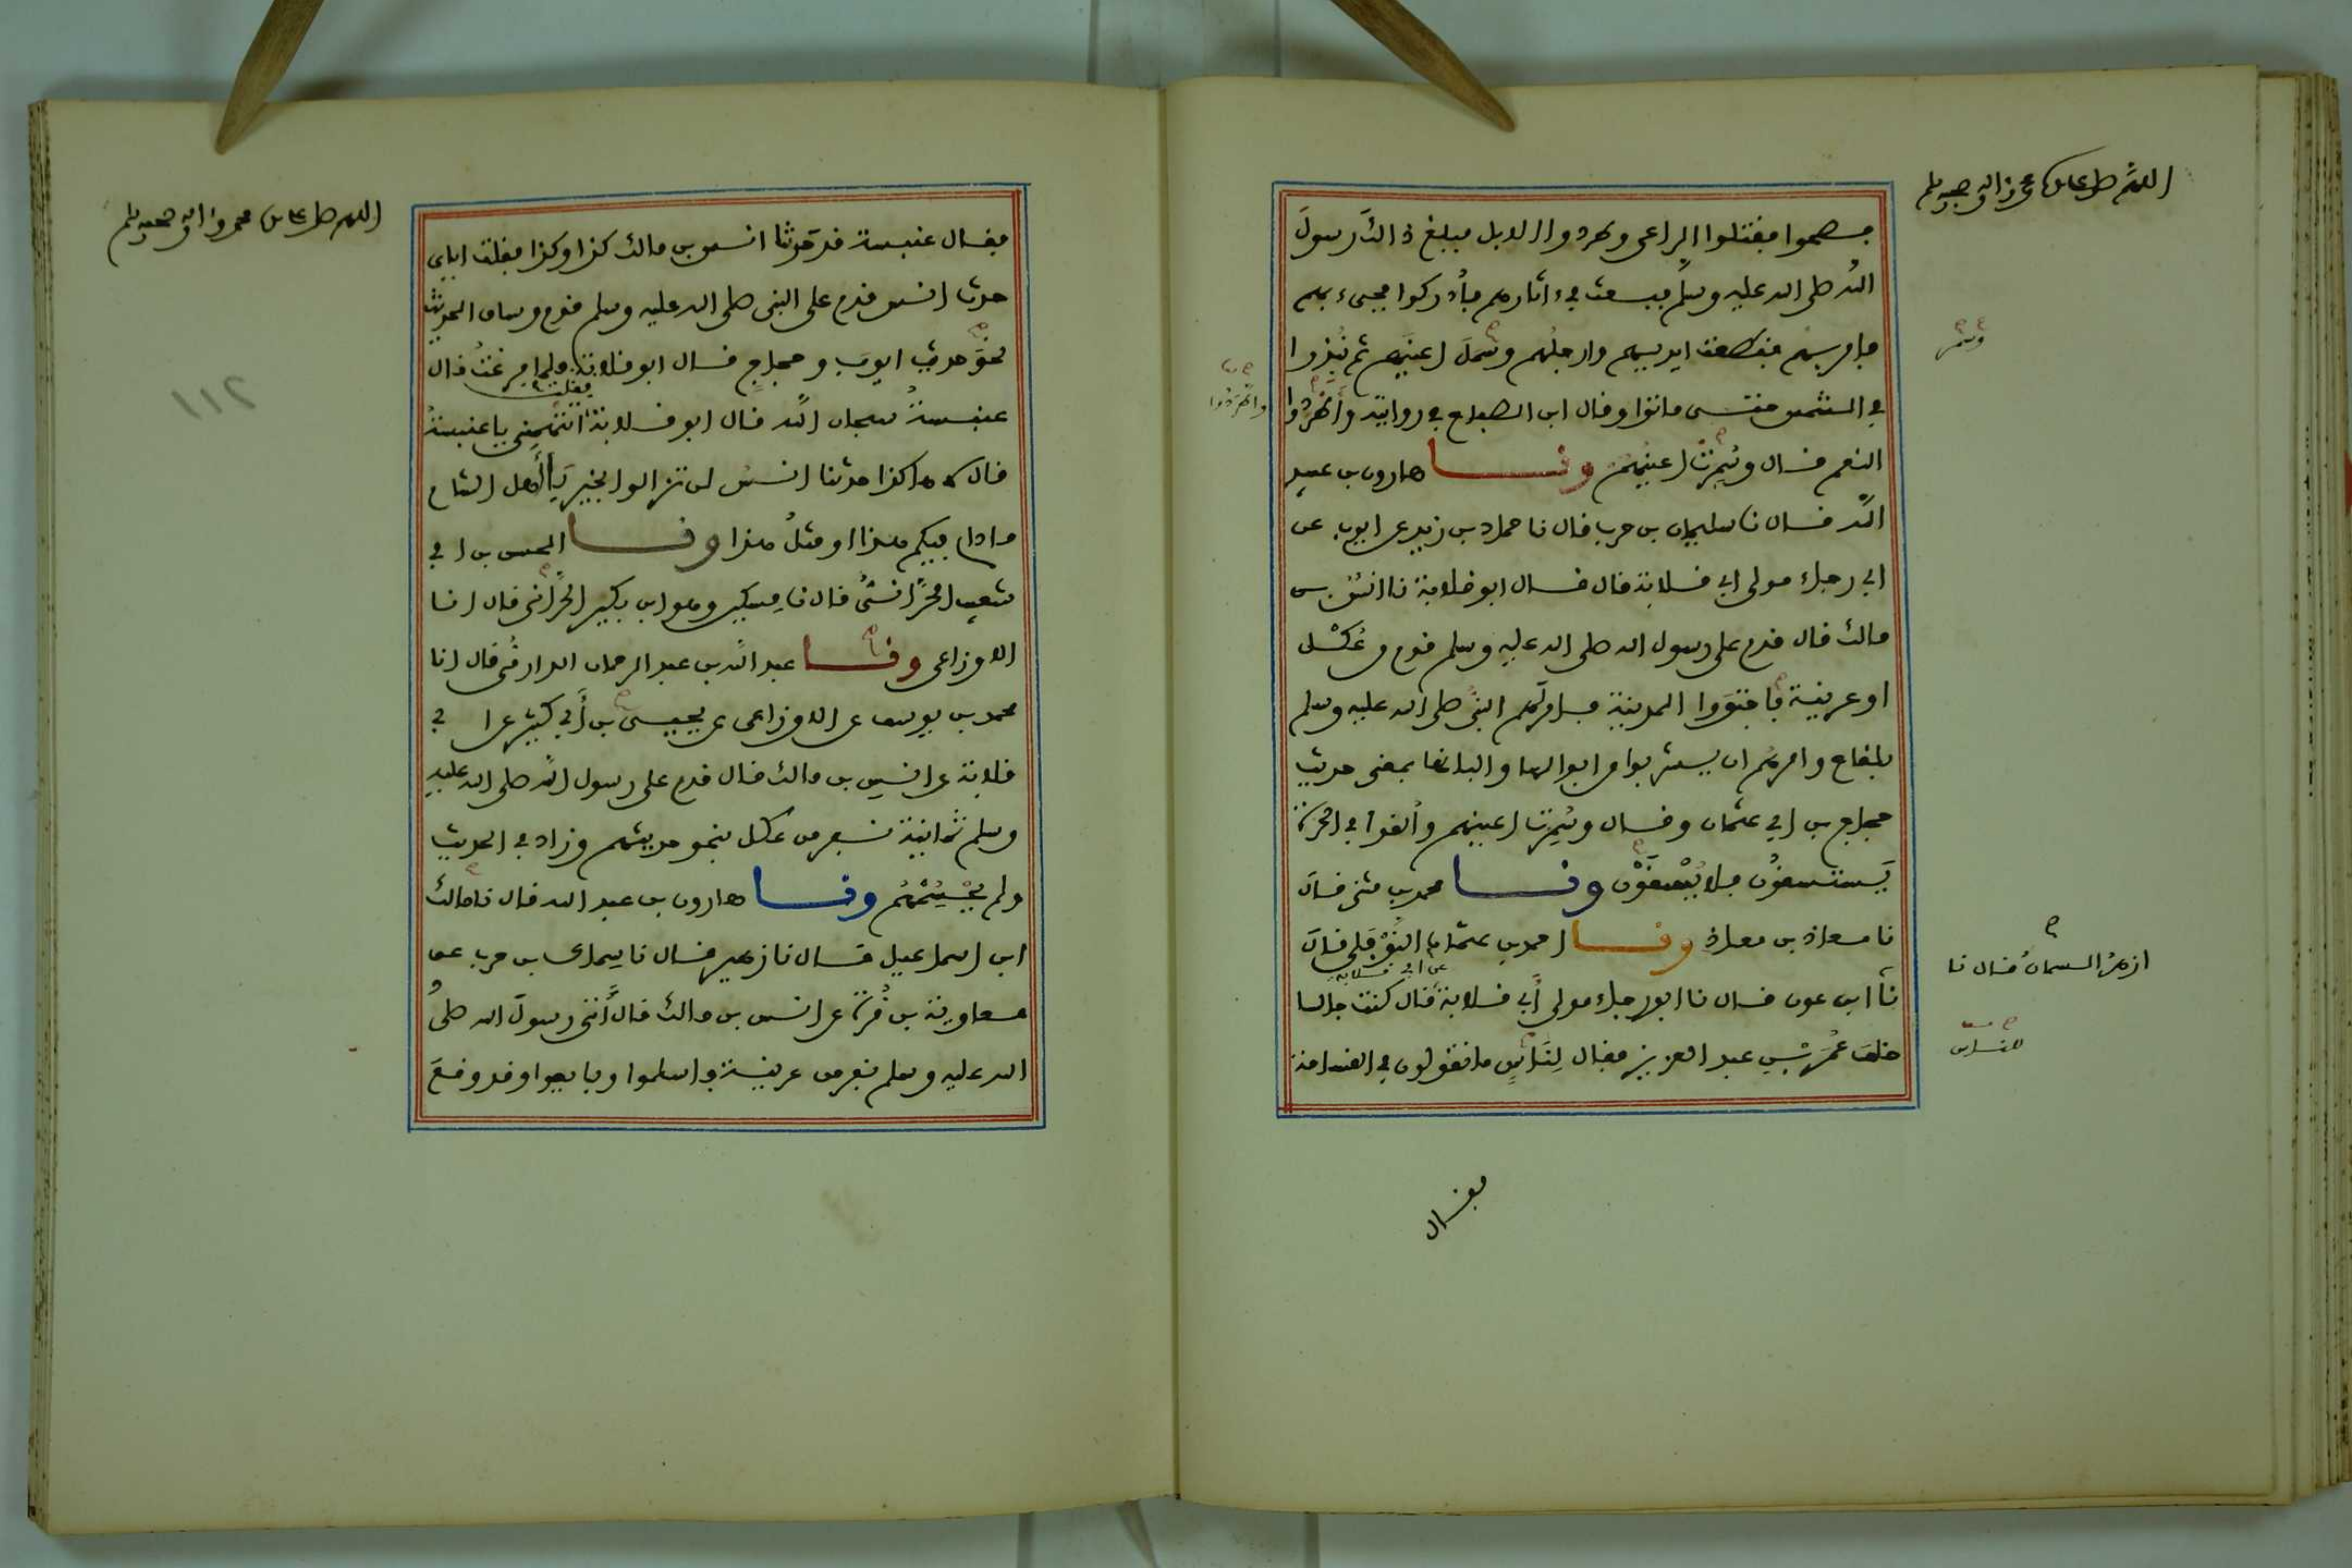 اللهم صل على سيدنا محمد وآله وصحبه وسلم
فصحوا فقتلوا الراعي وطردوا الابل فبلغ ذالك رسول
الله صلى الله عليه وسلم فبعث في ءاثارهم فأدركوا فجيء بهم
فأمر بهم فقطعت ايديهم وارجلهم وسمل اعينهم ثم نبذوا
وسمر
في الشمس حتى ماتوا وقال ابن الصباح في روايته واطردوا
واطردوا
النعم قال وسمرت اعينهم ونا هارون بن عبد
الله قال نا سليمان بن حرب قال نا حماد بن زيد عن ايوب عن
ابي رجاء مولى ابي قلابة قال قال ابو قلابة نا انس بن
مالك قال قدم على رسول الله صلى الله عليه وسلم قوم من عكل
او عرينة فاجتووا المدينة فامر لهم النبي صلى الله عليه وسلم
بلقاح وامرهم ان يشربوا من ابوالها والبانها بمعنى حديث
حجاج بن ابي عثمان وقال وسمرت اعينهم وألقوا في الحرة
يستسقون فلا يسقون ونا محمد بن مثنى قال
نا معاذ بن معاذ ونا احمد بن عثمان النوفلي قال
ازهر السمان قال نا
نا ابن عون قال نا ابو رجاء مولى أبي قلابة عن ابي قلابة قال كنت جالسا
خلف عمر بن عبد العزيز فقال لناس ما تقولون في القسامة
للناس
فقال
اللهم صل على سيدنا محمد وآله وصحبه وسلم
فقال عنبسة قد حدثنا انس بن مالك كذا وكذا فقلت اياي
حدث انس قدم على النبي صلى الله عليه وسلم قوم وساق الحديث
بنحو حديث ايوب وحجاج قال ابو قلابة فلما فرغت قال
عنبسة سبحان الله قال ابو قلابة فقلت اتتهمني يا عنبسة
قال لا هاكذا حدثنا انس لن تزالوا بخير يا أهل الشام
ما دام فيكم هذا او مثل هذا ونا الحسن بن ابي
شعيب الحراني قال نا مسكين وهو ابن بكير الحراني قال انا
الاوزاعي ونا عبد الله بن عبد الرحمان الدارمي قال انا
محمد بن يوسف عن الاوزاعي عن يحيى بن أبي كثير عن ابي
قلابة عن انس بن مالك قال قدم على رسول الله صلى الله عليه
وسلم ثمانية نفر من عكل بنحو حديثهم وزاد في الحديث
ولم يحسمهم ونا هارون بن عبد الله قال نا مالك
ابن اسماعيل قال نا زهير قال نا سماك بن حرب عن
معاوية بن قرة عن انس بن مالك قال أتى رسول الله صلى
الله عليه وسلم نفر من عرينة فاسلموا وبايعوا وقد وقع
١١٢